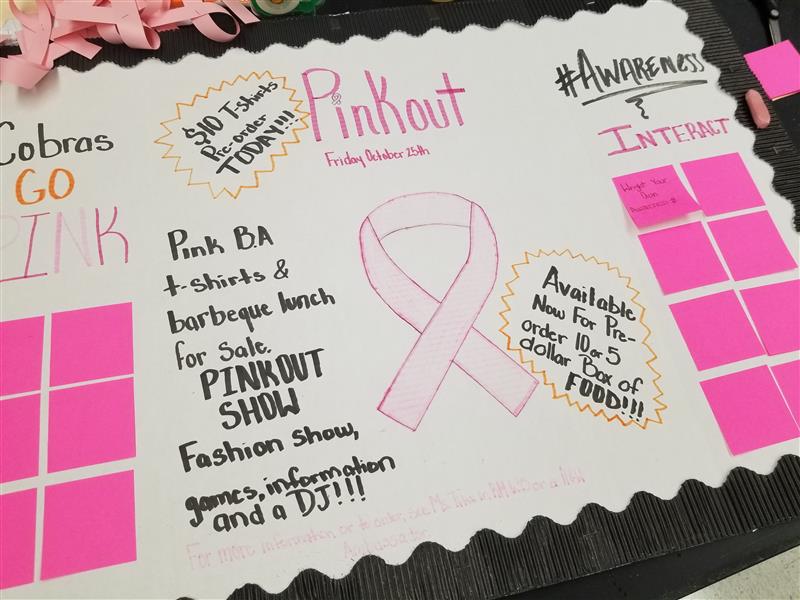 Cobras
GO
PINK
$10 T-shirts
Pre-order
TODAY!!!
Pinkout
Friday October 25th
Pink B.A
t-shirts &
barbeque lunch
for Sale.
PINKOUT
SHOW
Fashion show,
games, information
and a DJ!!!
Available
Now For Pre-
order 10 or 5
dollar Box of
FOOD!!!
For more information or to order, see Ms. in RM or a
#AWARENESS
&
INTERACT
Wright Your
Own
Awareness #